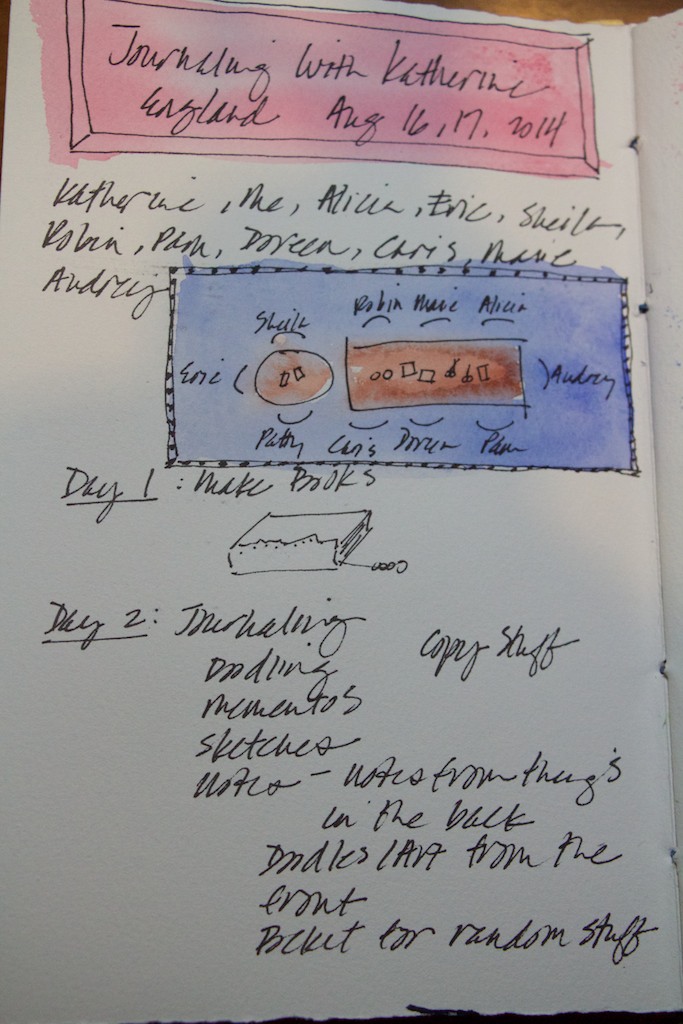 Journaling with Katherine
England Aug 16, 17, 2014
Katherine, Me, Alicia, Eric, Sheila,
Robin, Pam, Doreen, Caris, Marie
Audrey
Robin Marie Alicia
Sheila
Eric
Audrey
Patty Caris Doreen Pam
Day 1: Make Books
Day 2: Journaling
Copy Stuff
Doodling
mementos
sketches
Notes - Notes from things
in the back
Doodles/Art from the
front
Pocket for random stuff